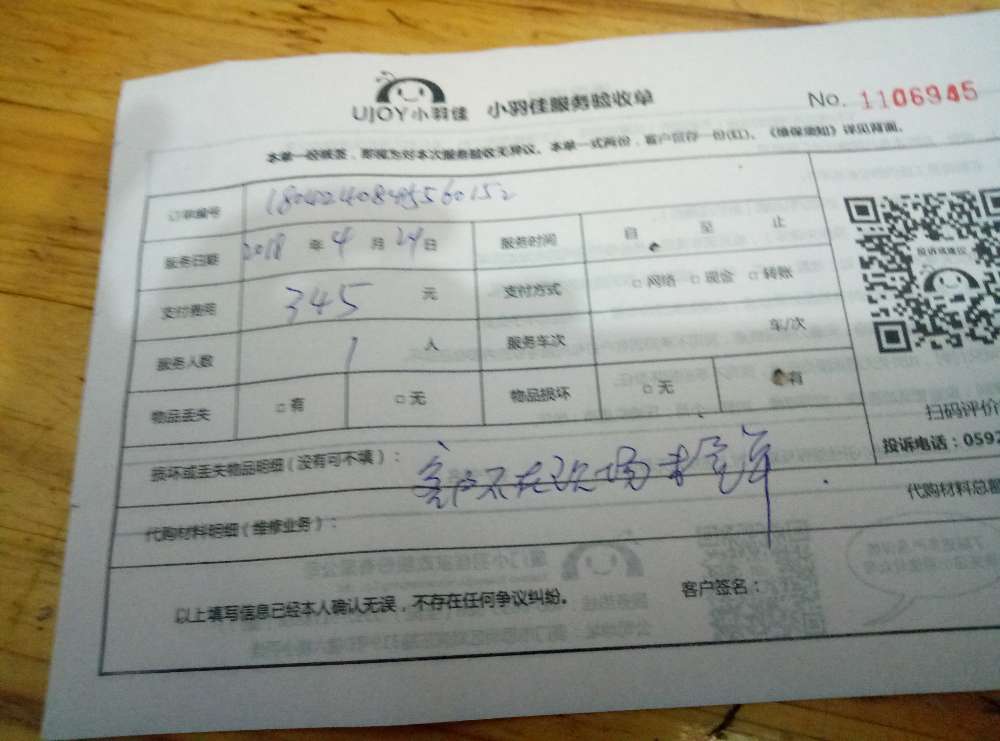 UJOY小羽佳 小羽佳服务验收单 No. 1106945
本单一经核签，即视为对本次服务验收无异议。本单一式两份，客户留存一份(红)。《维保须知》详见背面。
订单编号
服务日期 2018 年 4 月 24 日 服务时间 自 至 止
支付费用 345 元 支付方式 □ 网络 □ 现金 □ 转账
服务人数 1 人 服务车次 车/次
物品丢失 □ 有 □ 无 物品损坏 □ 无 有
投诉或建议
扫码评价
投诉电话：0592
损坏或丢失物品明细（没有可不填）：
客户不在现场未签单
代购材料明细（维修业务）：
代购材料总额
以上填写信息已经本人确认无误，不存在任何争议纠纷。 客户签名：